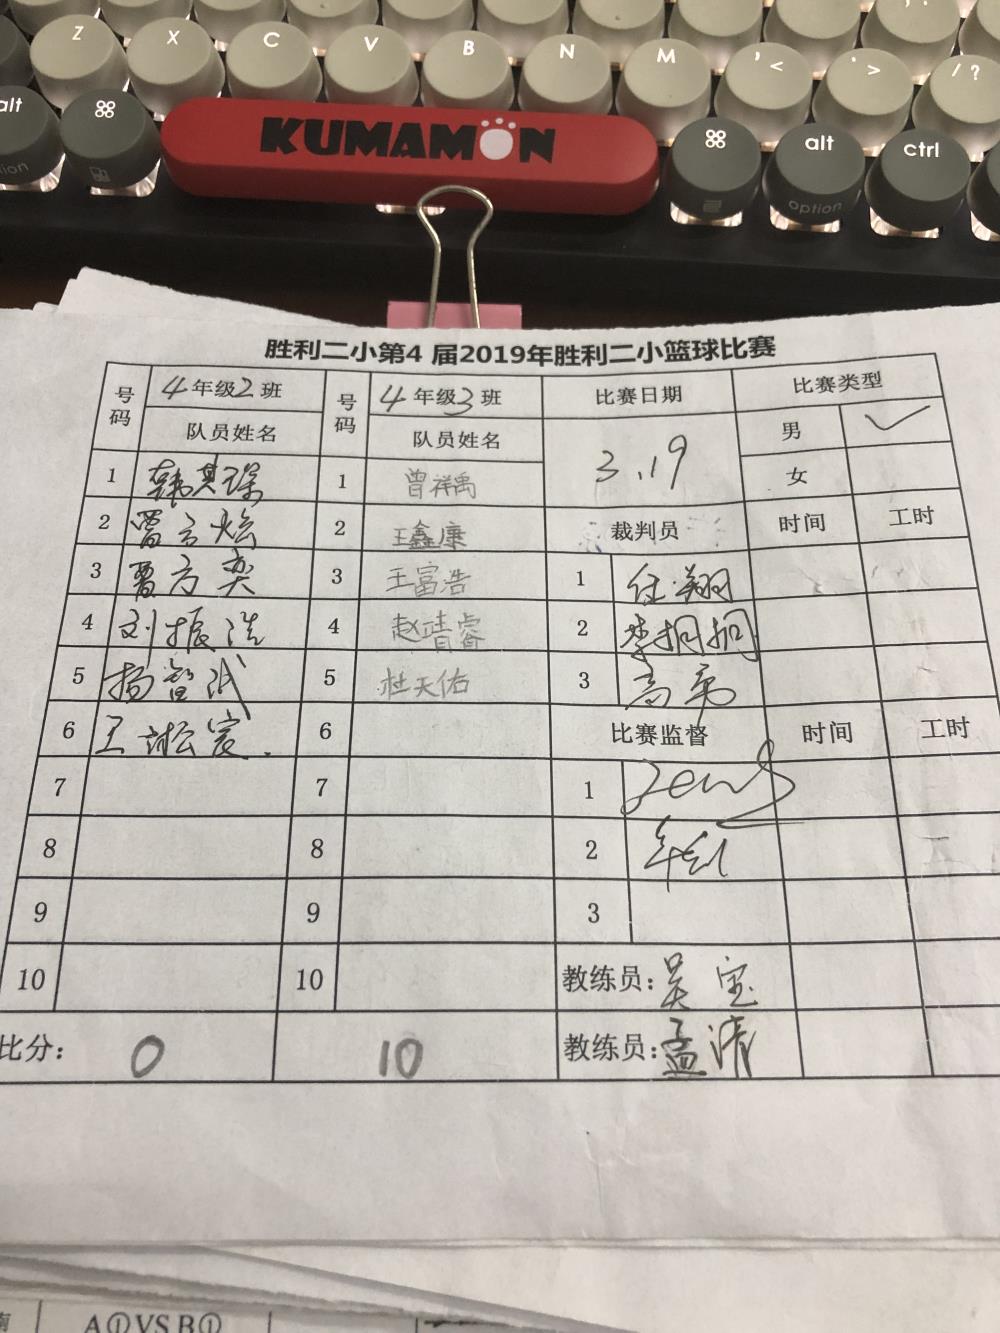 Z X C V B N M , < . > / ?
alt ⌘ KUMAMON ⌘ alt ctrl
option
胜利二小第4 届2019年胜利二小篮球比赛
号码 4年级2班 号码 4年级3班 比赛日期 比赛类型
队员姓名 队员姓名 3.19 男 ✓
1 韩其琛 1 曾祥禹 女
2 2 王鑫康 裁判员 时间 工时
3 3 王富浩 1 任翔
4 刘振浩 4 赵靖睿 2 李桐桐
5 杨智斌 5 杜天佑 3 高
6 王 6 比赛监督 时间 工时
7 7 1
8 8 2
9 9 3
10 10 教练员: 吴宝
比分: 0 10 教练员: 孟清
A①VS B①